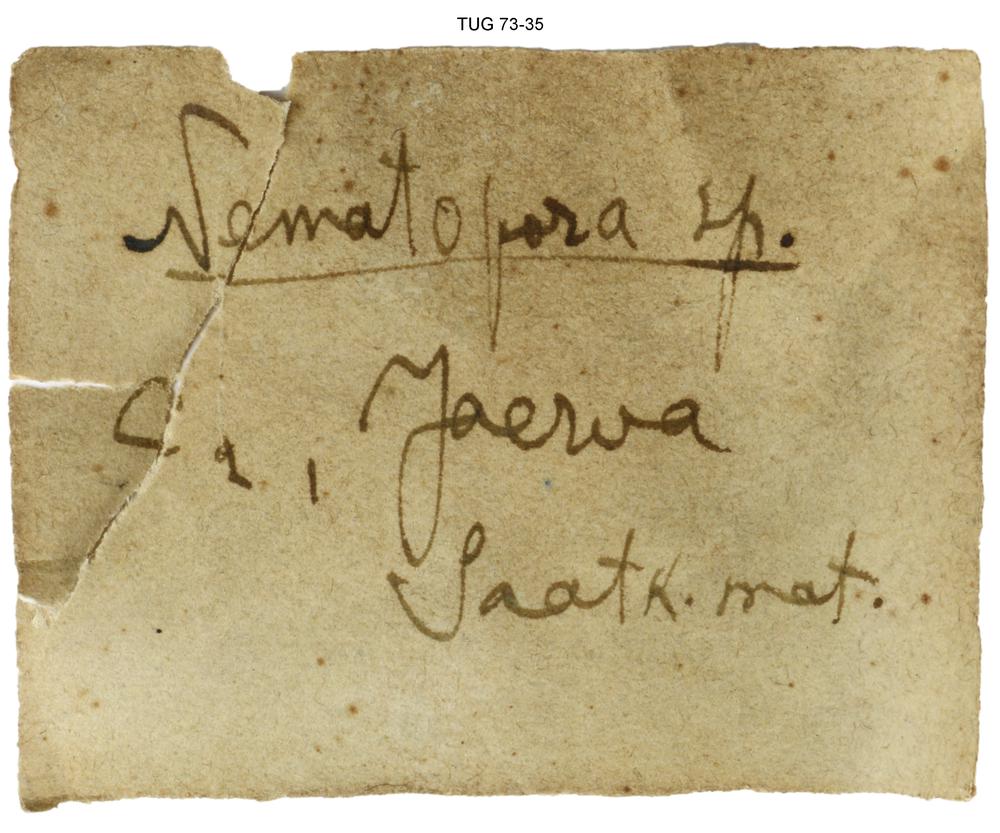 TUG 73-35
Nematopora sp.
C₂, Jaerva
Saatk. mat.